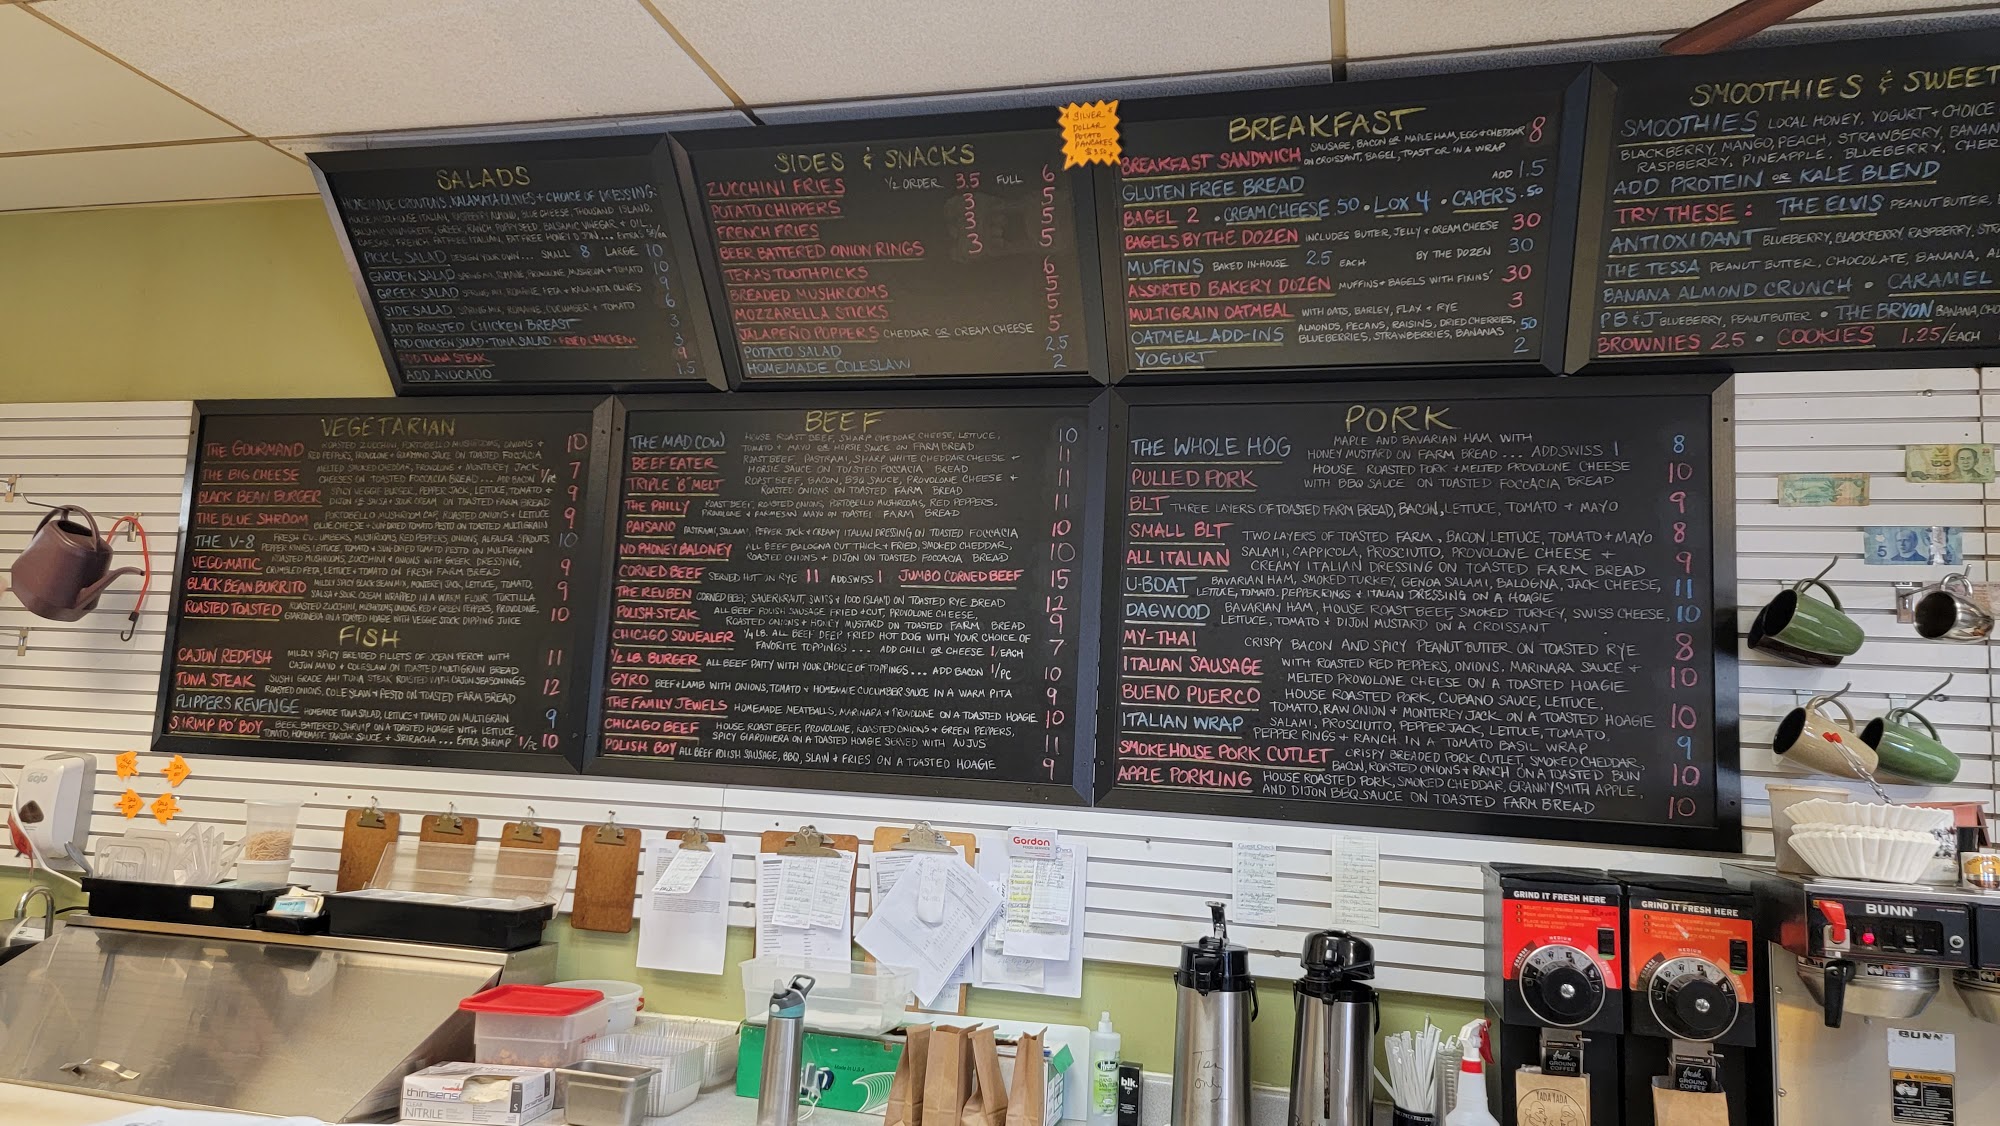 SALADS
HOMEMADE CROUTONS, KALAMATA OLIVES + CHOICE OF DRESSING:
PICK 6 SALAD DESIGN YOUR OWN... SMALL 8 LARGE 10
GARDEN SALAD SPRING MIX, ROMAINE, PROVOLONE, MUSHROOM + TOMATO 10
GREEK SALAD SPRING MIX, ROMAINE, FETA + KALAMATA OLIVES 9
SIDE SALAD SPRING MIX, ROMAINE, CUCUMBER + TOMATO 6
ADD ROASTED CHICKEN BREAST 3
ADD CHICKEN SALAD • TUNA SALAD • FRIED CHICKEN • 3
ADD TUNA STEAK 9
ADD AVOCADO 1.5
SIDES & SNACKS
ZUCCHINI FRIES 1/2 ORDER 3.5 FULL 6
POTATO CHIPPERS 3 5
FRENCH FRIES 3 5
BEER BATTERED ONION RINGS 3 5
TEXAS TOOTHPICKS 6
BREADED MUSHROOMS 5
MOZZARELLA STICKS 5
JALAPEÑO POPPERS CHEDDAR OR CREAM CHEESE 5
POTATO SALAD 2.5
HOMEMADE COLESLAW 2
SILVER
DOLLAR
POTATO
PANCAKES
$3.50
BREAKFAST
BREAKFAST SANDWICH SAUSAGE, BACON OR MAPLE HAM, EGG + CHEDDAR 8
ON CROISSANT, BAGEL, TOAST OR IN A WRAP
GLUTEN FREE BREAD ADD 1.5
BAGEL 2 • CREAM CHEESE .50 • LOX 4 • CAPERS .50
BAGELS BY THE DOZEN INCLUDES BUTTER, JELLY + CREAM CHEESE 30
MUFFINS BAKED IN-HOUSE 2.5 EACH BY THE DOZEN 30
ASSORTED BAKERY DOZEN MUFFINS + BAGELS WITH FIXINS' 30
MULTIGRAIN OATMEAL WITH OATS, BARLEY, FLAX + RYE 3
OATMEAL ADD-INS ALMONDS, PECANS, RAISINS, DRIED CHERRIES,
BLUEBERRIES, STRAWBERRIES, BANANAS .50
YOGURT 2
SMOOTHIES & SWEET
SMOOTHIES LOCAL HONEY, YOGURT + CHOICE
BLACKBERRY, MANGO, PEACH, STRAWBERRY, BANAN
RASPBERRY, PINEAPPLE, BLUEBERRY, CHER
ADD PROTEIN OR KALE BLEND
TRY THESE: THE ELVIS PEANUT BUTTER,
ANTIOXIDANT BLUEBERRY, BLACKBERRY, RASPBERRY, STR
THE TESSA PEANUT BUTTER, CHOCOLATE, BANANA, AL
BANANA ALMOND CRUNCH • CARAMEL
PB & J BLUEBERRY, PEANUT BUTTER • THE BRYON BANANA, CHO
BROWNIES 2.5 • COOKIES 1.25/EACH
VEGETARIAN
THE GOURMAND ROASTED ZUCCHINI, PORTOBELLO MUSHROOMS, ONIONS + 10
RED PEPPERS, PROVOLONE + GOURMAND SAUCE ON TOASTED FOCCACIA
THE BIG CHEESE MELTED SMOKED CHEDDAR, PROVOLONE + MONTEREY JACK 7
CHEESES ON TOASTED FOCCACIA BREAD... ADD BACON 1/PC
BLACK BEAN BURGER SPICY VEGGIE BURGER, PEPPER JACK, LETTUCE, TOMATO + 9
DIJON OR SALSA + SOUR CREAM ON TOASTED FARM BREAD
THE BLUE SHROOM PORTOBELLO MUSHROOM CAP, ROASTED ONIONS + LETTUCE 9
BLUE CHEESE + SUN-DRIED TOMATO PESTO ON TOASTED MULTIGRAIN
THE V-8 FRESH CUCUMBERS, MUSHROOMS, RED PEPPERS, ONIONS, ALFALFA SPROUTS, 10
PEPPER RINGS, LETTUCE, TOMATO + SUN-DRIED TOMATO PESTO ON MULTIGRAIN
VEGO-MATIC ROASTED MUSHROOMS, ZUCCHINI + ONIONS WITH GREEK DRESSING, 9
CRUMBLED FETA, LETTUCE + TOMATO ON FRESH FARM BREAD
BLACK BEAN BURRITO MILDLY SPICY BLACK BEAN MIX, MONTEREY JACK, LETTUCE, TOMATO, 9
SALSA + SOUR CREAM WRAPPED IN A WARM FLOUR TORTILLA
ROASTED TOASTED ROASTED ZUCCHINI, MUSHROOMS, ONIONS, RED + GREEN PEPPERS, PROVOLONE, 10
GIARDINERA ON A TOASTED HOAGIE WITH VEGGIE STOCK DIPPING JUICE
FISH
CAJUN REDFISH MILDLY SPICY BREADED FILLETS OF OCEAN PERCH WITH 11
CAJUN MAYO + COLESLAW ON TOASTED MULTIGRAIN BREAD
TUNA STEAK SUSHI GRADE AHI TUNA STEAK ROASTED WITH CAJUN SEASONINGS 12
ROASTED ONIONS, COLESLAW + PESTO ON TOASTED FARM BREAD
FLIPPERS REVENGE HOMEMADE TUNA SALAD, LETTUCE + TOMATO ON MULTIGRAIN 9
SHRIMP PO' BOY BEER BATTERED SHRIMP ON A TOASTED HOAGIE WITH LETTUCE,
TOMATO, HOMEMADE TARTAR SAUCE + SRIRACHA... EXTRA SHRIMP 1/PC 10
BEEF
THE MAD COW HOUSE ROAST BEEF, SHARP CHEDDAR CHEESE, LETTUCE, 10
TOMATO + MAYO OR HORSIE SAUCE ON FARM BREAD
BEEFEATER ROAST BEEF, PASTRAMI, SHARP WHITE CHEDDAR CHEESE + 11
HORSIE SAUCE ON TOASTED FOCCACIA BREAD
TRIPLE "B" MELT ROAST BEEF, BACON, BBQ SAUCE, PROVOLONE CHEESE + 11
ROASTED ONIONS ON TOASTED FARM BREAD
THE PHILLY ROAST BEEF, ROASTED ONIONS, PORTOBELLO MUSHROOMS, RED PEPPERS, 11
PROVOLONE + PARMESAN MAYO ON TOASTED FARM BREAD
PAISANO PASTRAMI, SALAMI, PEPPER JACK + CREAMY ITALIAN DRESSING ON TOASTED FOCCACIA 10
NO PHONEY BALONEY ALL BEEF BALOGNA CUT THICK + FRIED, SMOKED CHEDDAR, 10
ROASTED ONIONS + DIJON ON TOASTED FOCACCIA BREAD
CORNED BEEF SERVED HOT ON RYE 11 ADD SWISS 1 JUMBO CORNED BEEF 15
THE REUBEN CORNED BEEF, SAUERKRAUT, SWISS + 1000 ISLAND ON TOASTED RYE BREAD 12
POLISH-STEAK ALL BEEF POLISH SAUSAGE FRIED + CUT, PROVOLONE CHEESE, 9
ROASTED ONIONS + HONEY MUSTARD ON TOASTED FARM BREAD
CHICAGO SQUEALER 1/4 LB. ALL BEEF DEEP FRIED HOT DOG WITH YOUR CHOICE OF 7
FAVORITE TOPPINGS... ADD CHILI OR CHEESE 1/EACH
1/2 LB. BURGER ALL BEEF PATTY WITH YOUR CHOICE OF TOPPINGS... ADD BACON 1/PC 10
GYRO BEEF + LAMB WITH ONIONS, TOMATO + HOMEMADE CUCUMBER SAUCE IN A WARM PITA 9
THE FAMILY JEWELS HOMEMADE MEATBALLS, MARINARA + PROVOLONE ON A TOASTED HOAGIE 10
CHICAGO BEEF HOUSE ROAST BEEF, PROVOLONE, ROASTED ONIONS + GREEN PEPPERS, 11
SPICY GIARDINERA ON A TOASTED HOAGIE SERVED WITH AU JUS
POLISH BOY ALL BEEF POLISH SAUSAGE, BBQ, SLAW + FRIES ON A TOASTED HOAGIE 9
PORK
THE WHOLE HOG MAPLE AND BAVARIAN HAM WITH 8
HONEY MUSTARD ON FARM BREAD... ADD SWISS 1
PULLED PORK HOUSE ROASTED PORK + MELTED PROVOLONE CHEESE 10
WITH BBQ SAUCE ON TOASTED FOCCACIA BREAD
BLT THREE LAYERS OF TOASTED FARM BREAD, BACON, LETTUCE, TOMATO + MAYO 9
SMALL BLT TWO LAYERS OF TOASTED FARM, BACON, LETTUCE, TOMATO + MAYO 8
ALL ITALIAN SALAMI, CAPPICOLA, PROSCIUTTO, PROVOLONE CHEESE + 9
CREAMY ITALIAN DRESSING ON TOASTED FARM BREAD
U-BOAT BAVARIAN HAM, SMOKED TURKEY, GENOA SALAMI, BALOGNA, JACK CHEESE, 11
LETTUCE, TOMATO, PEPPER RINGS + ITALIAN DRESSING ON A HOAGIE
DAGWOOD BAVARIAN HAM, HOUSE ROAST BEEF, SMOKED TURKEY, SWISS CHEESE, 10
LETTUCE, TOMATO + DIJON MUSTARD ON A CROISSANT
MY-THAI CRISPY BACON AND SPICY PEANUT BUTTER ON TOASTED RYE 8
ITALIAN SAUSAGE WITH ROASTED RED PEPPERS, ONIONS, MARINARA SAUCE + 10
MELTED PROVOLONE CHEESE ON A TOASTED HOAGIE
BUENO PUERCO HOUSE ROASTED PORK, CUBANO SAUCE, LETTUCE,
TOMATO, RAW ONION + MONTEREY JACK ON A TOASTED HOAGIE 10
ITALIAN WRAP SALAMI, PROSCIUTTO, PEPPER JACK, LETTUCE, TOMATO,
PEPPER RINGS + RANCH IN A TOMATO BASIL WRAP 9
SMOKEHOUSE PORK CUTLET CRISPY BREADED PORK CUTLET, SMOKED CHEDDAR,
BACON, ROASTED ONIONS + RANCH ON A TOASTED BUN 10
APPLE PORKLING HOUSE ROASTED PORK, SMOKED CHEDDAR, GRANNY SMITH APPLE,
AND DIJON BBQ SAUCE ON TOASTED FARM BREAD 10
GOJO
Gordon
GRIND IT FRESH HERE
GRIND IT FRESH HERE
BUNN
BUNN
fresh GROUND COFFEE
fresh GROUND COFFEE
YADA YADA
thinsense
NITRILE
blk.